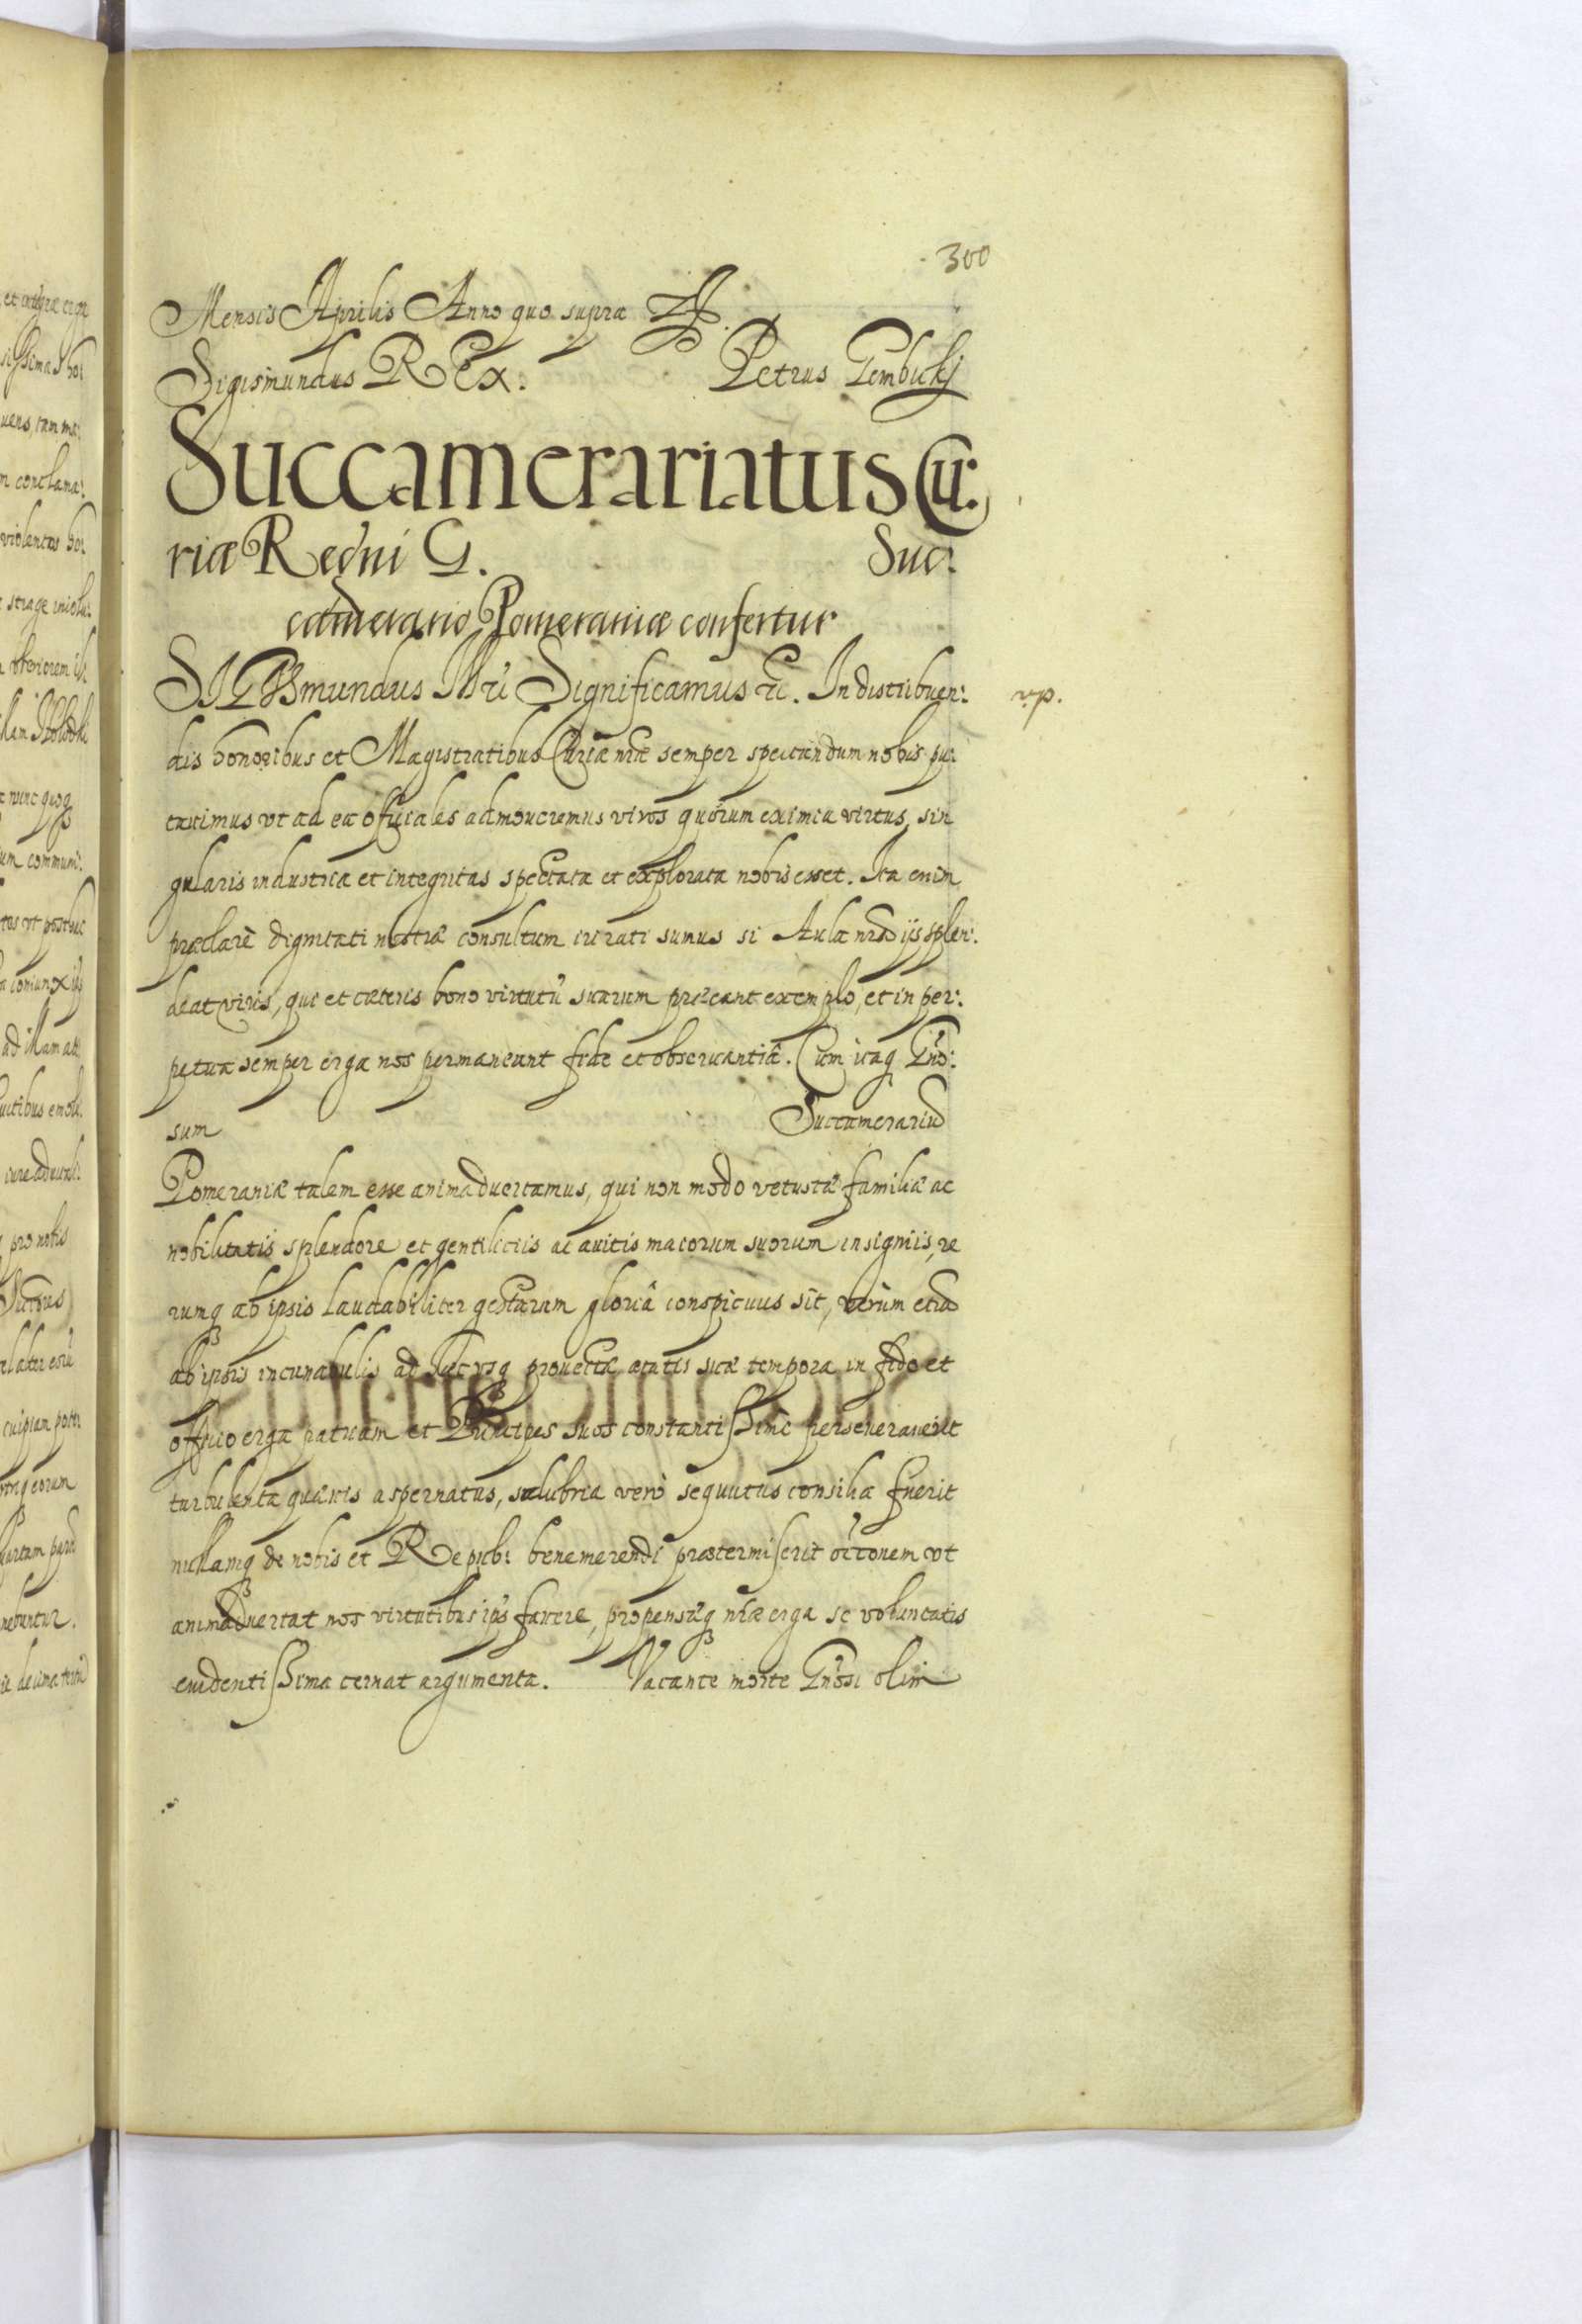 300
Mensis Aprilis Anno quo supra
Sigismundus REx. Petrus Gembickj
Succamerariatus Cu:
riæ Regni G. Suc:
camerario Pomeraniæ confertur
SIGISmundus IIIti Significamus &c. In distribuen: rp.
dis honoribus et Magistratibus Curiæ nræ semper spectandum nobis pu:
tauimus vt ad ea officiales admoueremus viros quorum eximia virtus, sin
gularis industria et integritas spectata et explorata nobis esset. Ita enim
præclarè dignitati nostræ consultum iri rati sumus si Aula nrã ijs splen:
deat viris, qui et cæteris bono virtutũ suarum præeant exemplo, et in per:
petua semper erga nos permaneant fide et obseruantiâ. Cum itaq Gnõ:
sum Succamerariũ
Pomeraniæ talem esse animaduertamus, qui non modo vetustæ familiæ ac
nobilitatis splendore et gentilitiis ac auitis maiorum suorum insigniis, re
rumq ab ipsis laudabiliter gestarum gloriâ conspicuus sit, verùm etiã
ab ipsis incunabulis ad hæc vsq prouectæ ætatis suæ tempora in fide et
officio erga patriam et Principes suos constantissimè perseuerauerit
turbulenta quæuis aspernatus, salubria verò sequutus consilia fuerit
nullamq de nobis et Repub: benemerendi prætermiserit occõnem vt
animaduertat nos virtutibus ips fauere, propensæq nræ erga se voluntatis
euidentissima cernat argumenta. Vacante morte Gnosi olim